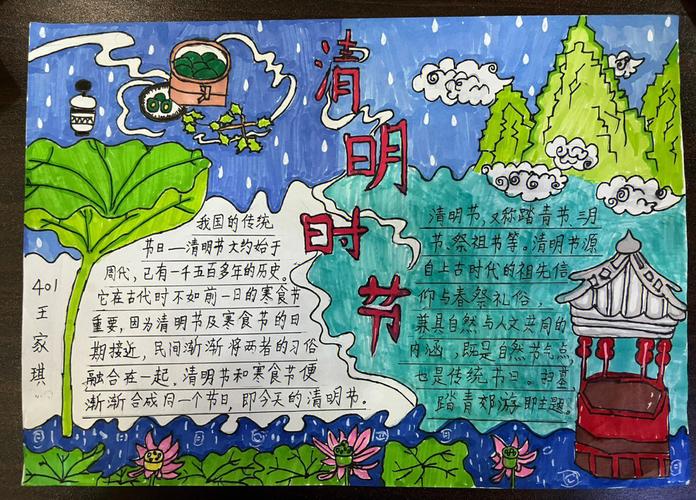 清明时节
我国的传统
节日——清明节大约始于
周代,已有一千五百多年的历史。
它在古代时不如前一日的寒食节
重要,因为清明节及寒食节的日
期接近,民间渐渐将两者的习俗
融合在一起,清明节和寒食节便
渐渐合成同一个节日,即今天的清明节。
401
王家琪
清明节,又称踏青节、三月
节、祭祖节等。清明节源
自上古时代的祖先信
仰与春祭礼俗,
兼具自然与人文共同的
内涵,既是自然节气点,
也是传统节日。扫墓、
踏青郊游即主题。